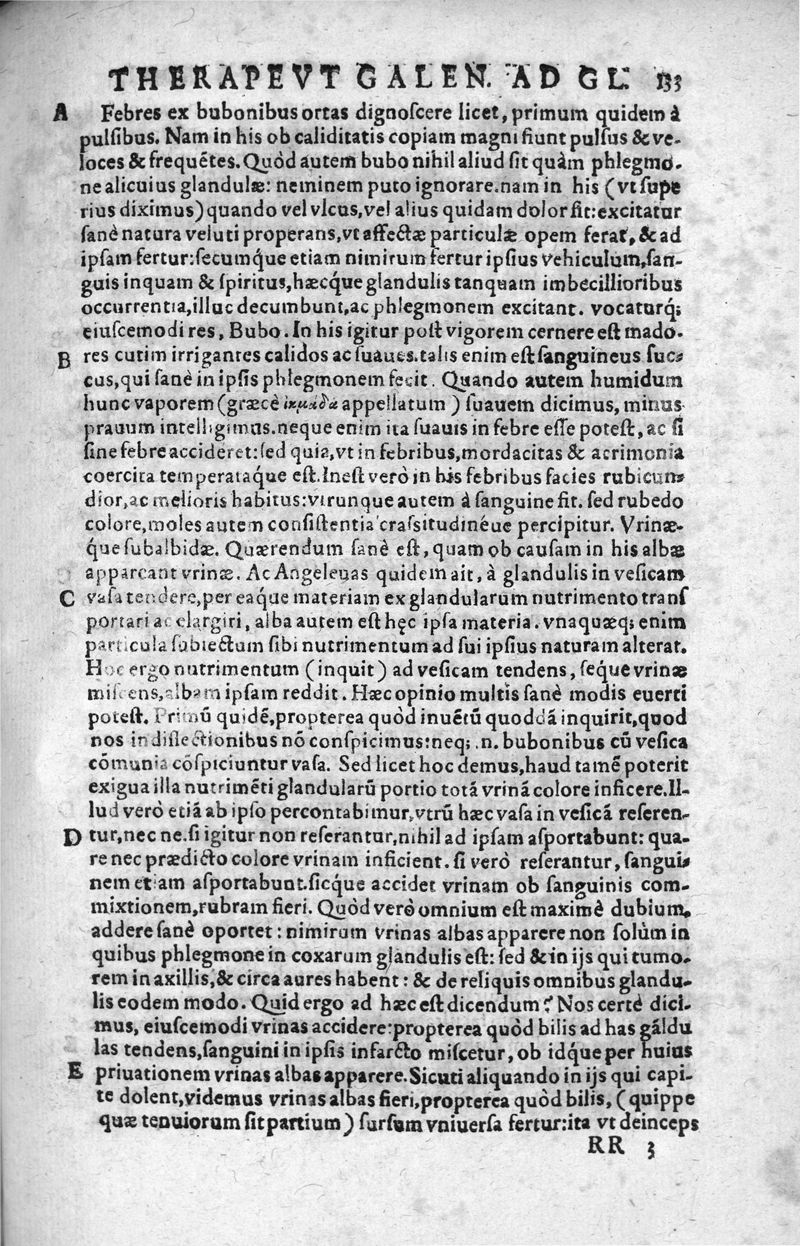 THERAPEVT GALEN. AD GL. 133
A Febres ex bubonibus ortas dignoſcere licet, primum quidem à
pulſibus. Nam in his ob caliditatis copiam magni fiunt pulſus & ve-
loces & frequẽtes. Quòd autem bubo nihil aliud ſit quàm phlegmo-
ne alicuius glandulæ: neminem puto ignorare. nam in his (vt ſupe
rius diximus) quando vel vlcus, vel alius quidam dolor fit: excitatur
ſanè natura veluti properans, vt affectæ particulæ opem ferat, & ad
ipſam fertur: ſecumq́ue etiam nimirum fertur ipſius vehiculum, ſan-
guis inquam & ſpiritus, hæcq́ue glandulis tanquam imbecillioribus
occurrentia, illuc decumbunt, ac phlegmonem excitant. vocaturq́;
eiuſcemodi res, Bubo. In his igitur poſt vigorem cernere eſt mado-
B res cutim irrigantes calidos ac ſuaues. talis enim eſt ſanguineus ſuc-
cus, qui ſanè in ipſis phlegmonem fecit. Quando autem humidum
hunc vaporem (græcè ἰκμάδα appellatum) ſuauem dicimus, minus
prauum intelligimus. neque enim ita ſuauis in febre eſſe poteſt, ac ſi
ſine febre accideret: ſed quia, vt in febribus, mordacitas & acrimonia
coercita temperataque eſt. Ineſt verò in his febribus facies rubicun-
dior, ac melioris habitus: vtrunque autem à ſanguine fit. ſed rubedo
colore, moles autem conſiſtentia craſsitudinéue percipitur. Vrinæ-
q́ue ſubalbidæ. Quærendum ſanè eſt, quam ob cauſam in his albæ
appareant vrinæ. Ac Angeleuas quidem ait, à glandulis in veſicam
C vaſa tendere, per eaque materiam ex glandularum nutrimento tranſ
portari ac elargiri, alba autem eſt hęc ipſa materia. vnaquæq; enim
particula ſubiectum ſibi nutrimentum ad ſui ipſius naturam alterat.
Hoc ergo nutrimentum (inquit) ad veſicam tendens, ſeque vrinæ
miſcens, albam ipſam reddit. Hæc opinio multis ſanè modis euerti
poteſt. Primũ quidẽ, propterea quòd inuẽtũ quoddã inquirit, quod
nos in diſſectionibus nõ conſpicimus: neq; .n. bubonibus cũ veſica
cõmunia cõſpiciuntur vaſa. Sed licet hoc demus, haud tamẽ poterit
exigua illa nutrimẽti glandularũ portio totã vrinã colore inficere. Il-
lud verò etiã ab ipſo percontabimur, vtrũ hæc vaſa in veſicã referen-
D tur, nec ne. ſi igitur non referantur, nihil ad ipſam aſportabunt: qua-
re nec prædicto colore vrinam inficient. ſi verò referantur, ſangui-
nem etiam aſportabunt. ſicq́ue accidet vrinam ob ſanguinis com-
mixtionem, rubram fieri. Quòd verò omnium eſt maximè dubium,
addere ſanè oportet: nimirum vrinas albas apparere non ſolùm in
quibus phlegmone in coxarum glandulis eſt: ſed & in ijs qui tumo-
rem in axillis, & circa aures habent: & de reliquis omnibus glandu-
lis eodem modo. Quid ergo ad hæc eſt dicendum? Nos certè dici-
mus, eiuſcemodi vrinas accidere: propterea quòd bilis ad has gãldu
las tendens, ſanguini in ipſis infarcto miſcetur, ob idq́ue per huius
E priuationem vrinas albas apparere. Sicuti aliquando in ijs qui capi-
te dolent, videmus vrinas albas fieri, propterea quòd bilis, (quippe
quæ tenuiorum ſit partium) ſurſum vniuerſa fertur: ita vt deinceps
RR 3